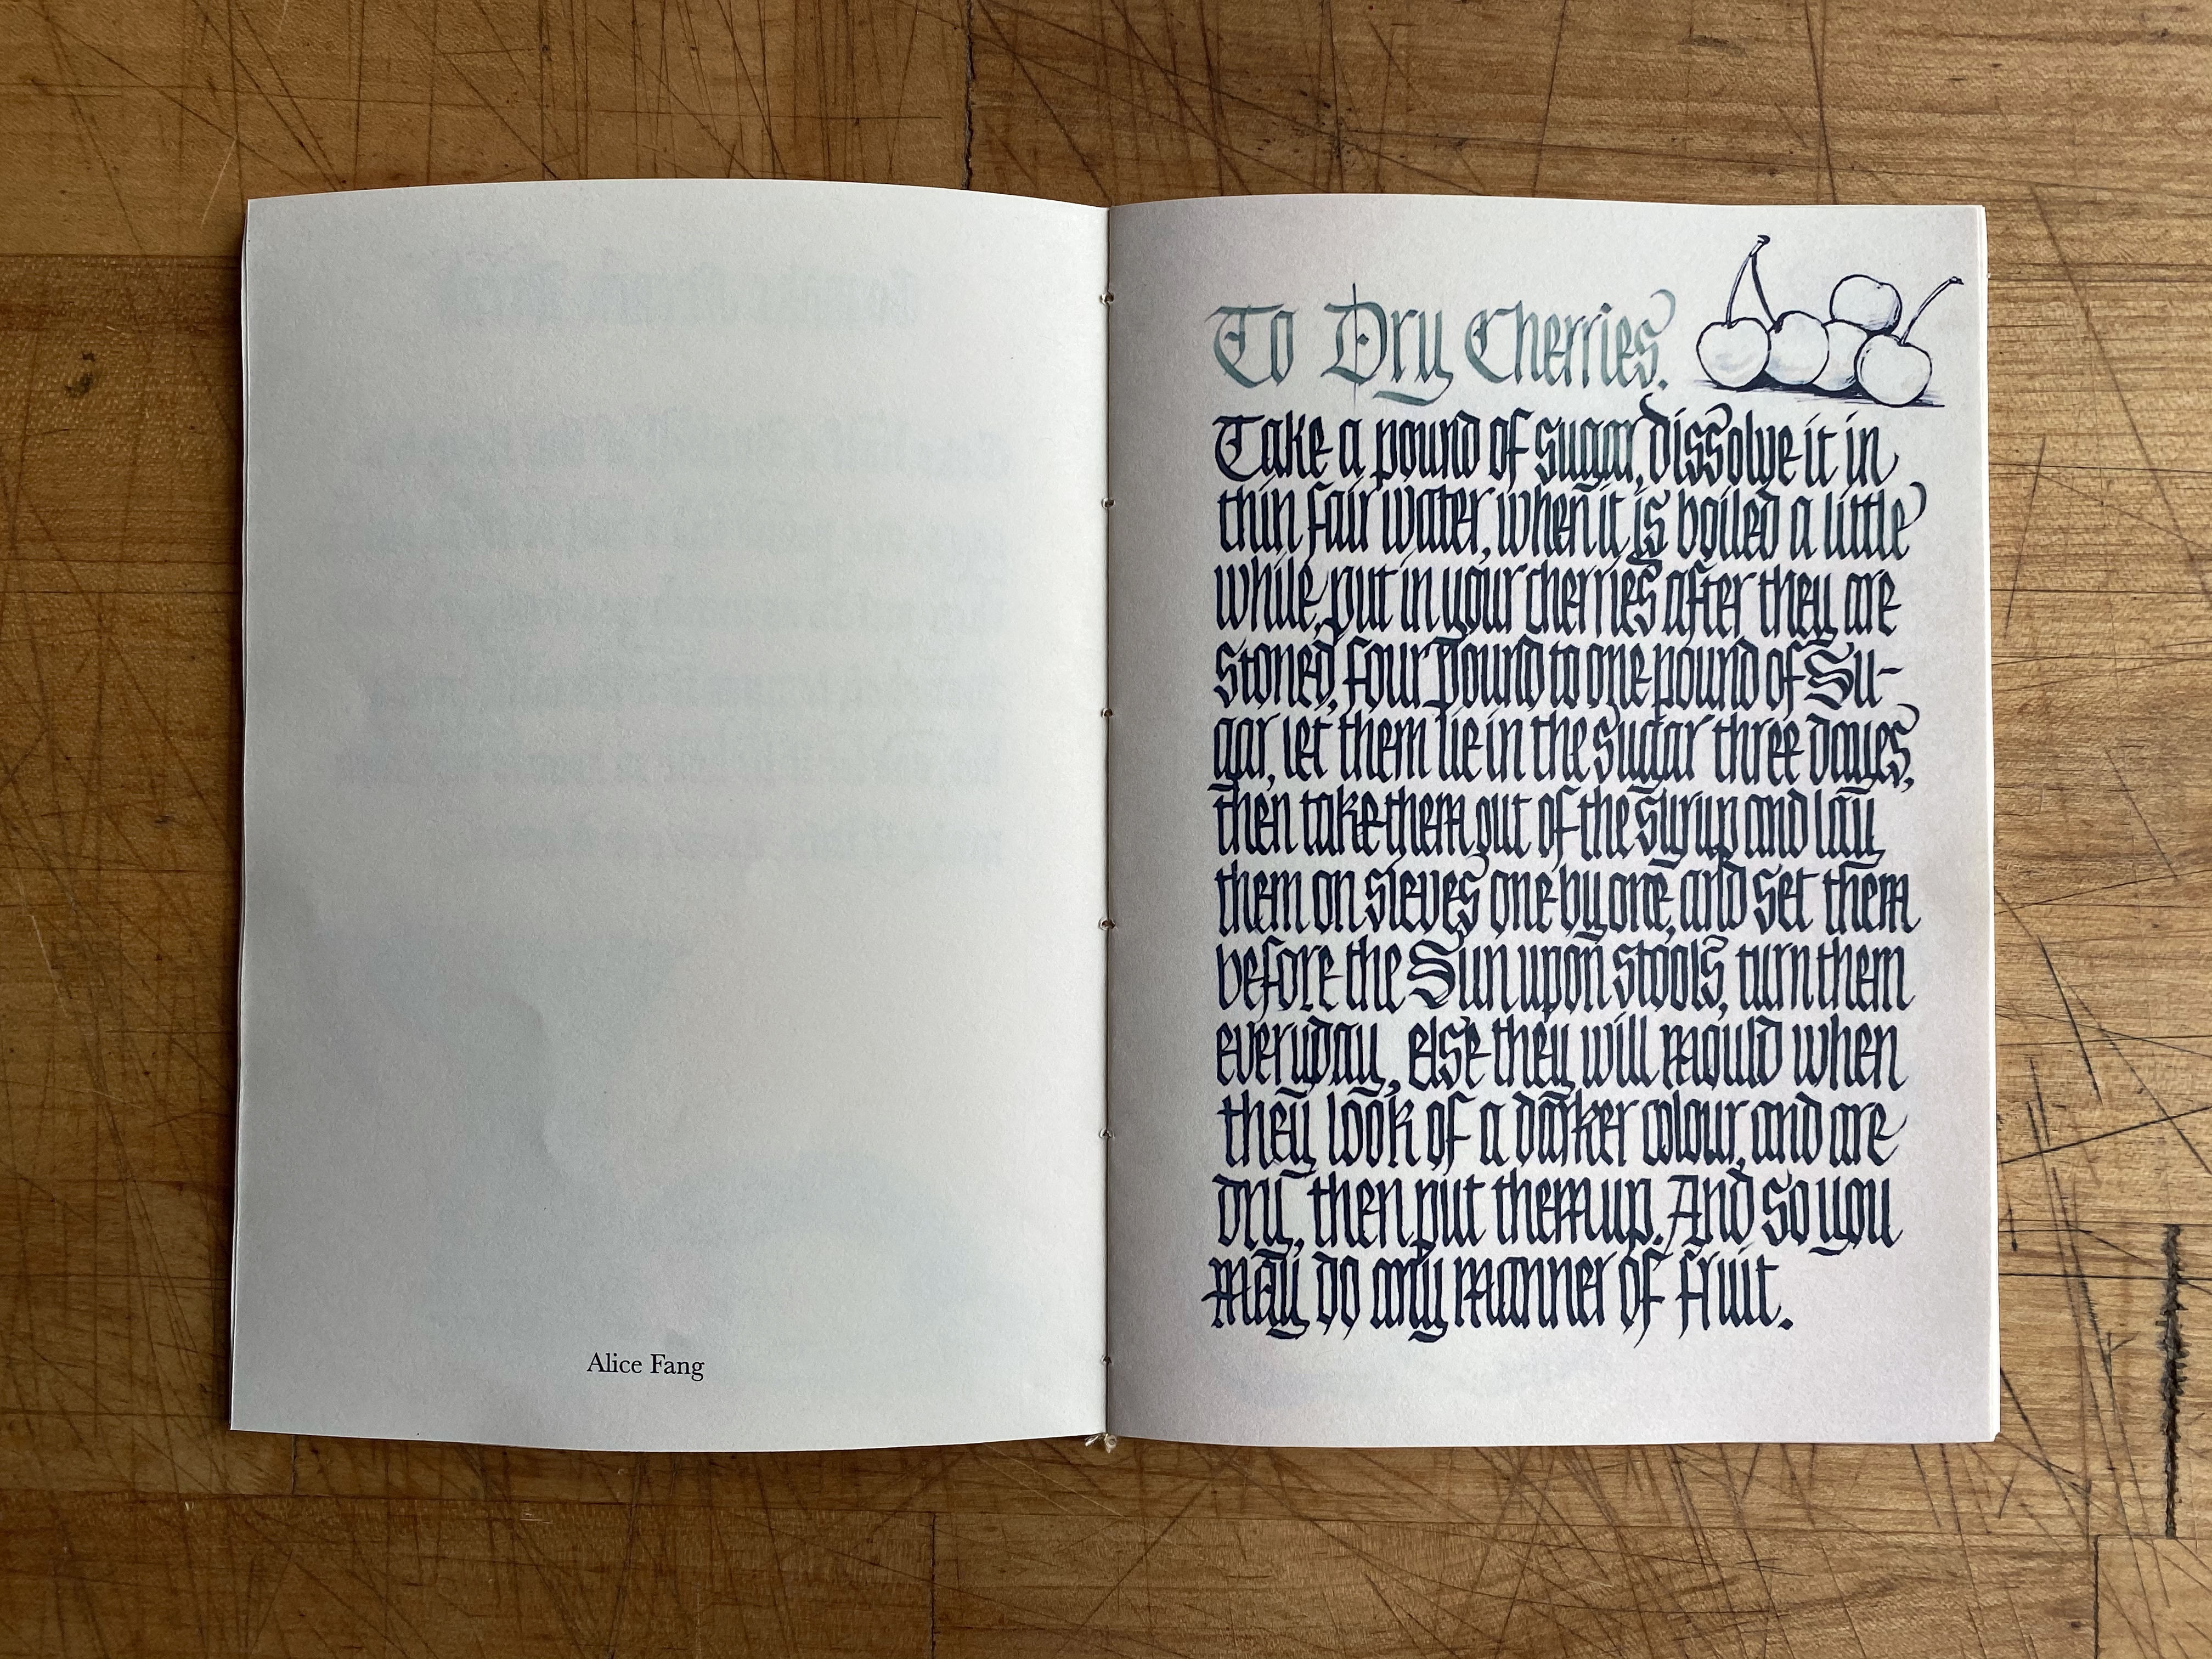 Alice Fang
To Dry Cherries.
Take a pound of sugar, dissolve it in
thin fair water, when it is boiled a little
while, put in your cherries after they are
stoned, four pound to one pound of Su-
gar, let them lie in the sugar three dayes,
then take them out of the syrup and lay
them on sieves one by one, and set them
before the Sun upon stools, turn them
everyday, else they will mould when
they look of a darker colour, and are
dry, then put them up. And so you
may do any manner of fruit.